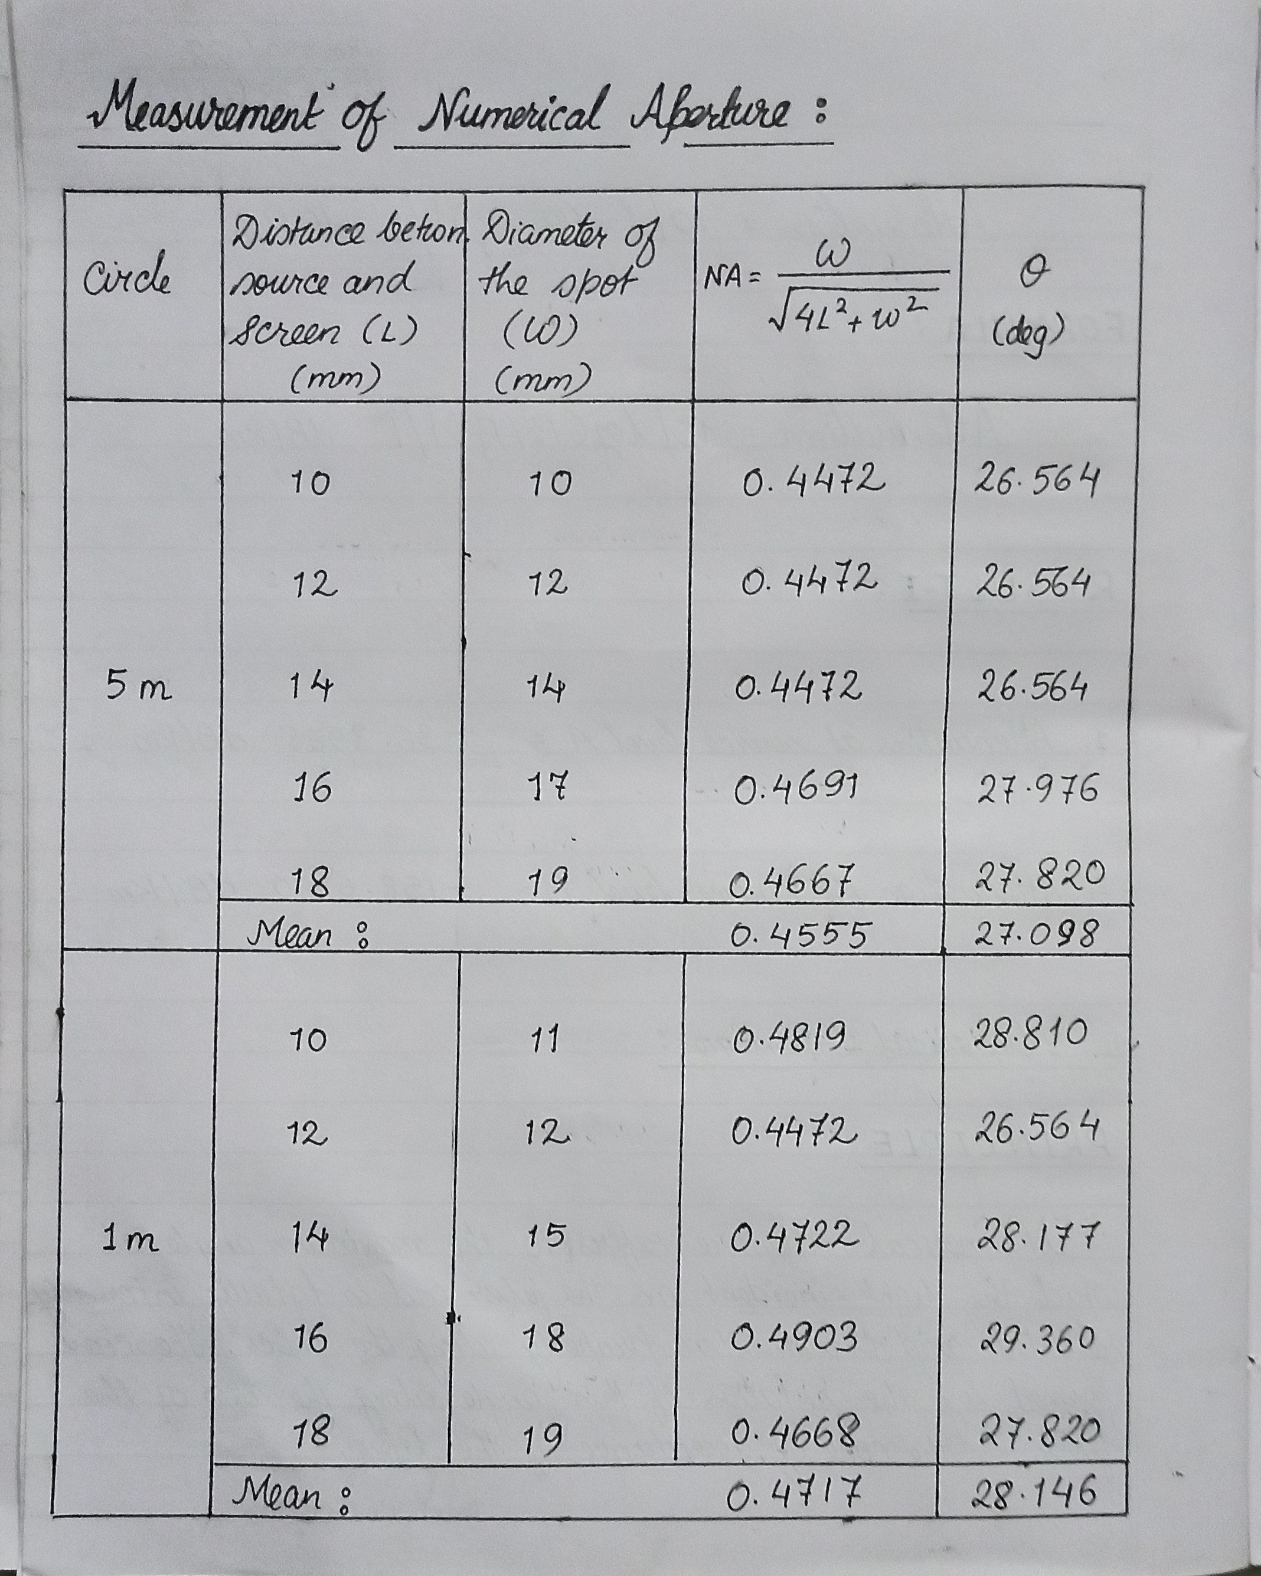 Measurement of Numerical Aperture :
Circle | Distance betwn source and screen (L) (mm) | Diameter of the spot (W) (mm) | NA = W / √4L²+w² | θ (deg)
10 10 0.4472 26.564
12 12 0.4472 26.564
5 m 14 14 0.4472 26.564
16 17 0.4691 27.976
18 19 0.4667 27.820
Mean : 0.4555 27.098
10 11 0.4819 28.810
12 12 0.4472 26.564
1 m 14 15 0.4722 28.177
16 18 0.4903 29.360
18 19 0.4668 27.820
Mean : 0.4717 28.146